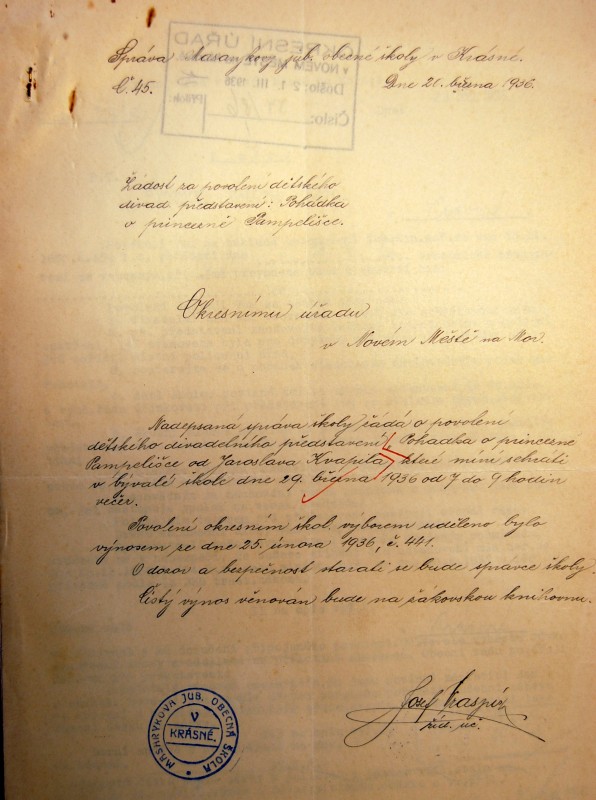 Správa Masarykovy jub. obecné školy v Krásné.
Č. 45.
Dne 21. března 1936.
OKRESNÍ ÚŘAD
v NOVÉM MĚSTĚ
Došlo: 21. III. 1936
Číslo:
Příloh
Žádost za povolení dětského
divad. představení: Pohádka
o princezně Pampelišce.
Okresnímu úřadu
v Novém Městě na Mor.
Nadepsaná správa školy žádá o povolení
dětského divadelního představení Pohádka o princezně
Pampelišce od Jaroslava Kvapila, které míní sehráti
v bývalé škole dne 29. března 1936 od 7 do 9 hodin
večer.
Povolení okresním škol. výborem uděleno bylo
výnosem ze dne 25. února 1936, č. 441.
O dozor a bezpečnost starati se bude správce školy.
Čistý výnos věnován bude na žákovskou knihovnu.
Josef
říd. uč.
MASARYKOVA JUB. OBECNÁ ŠKOLA
V
KRÁSNÉ.